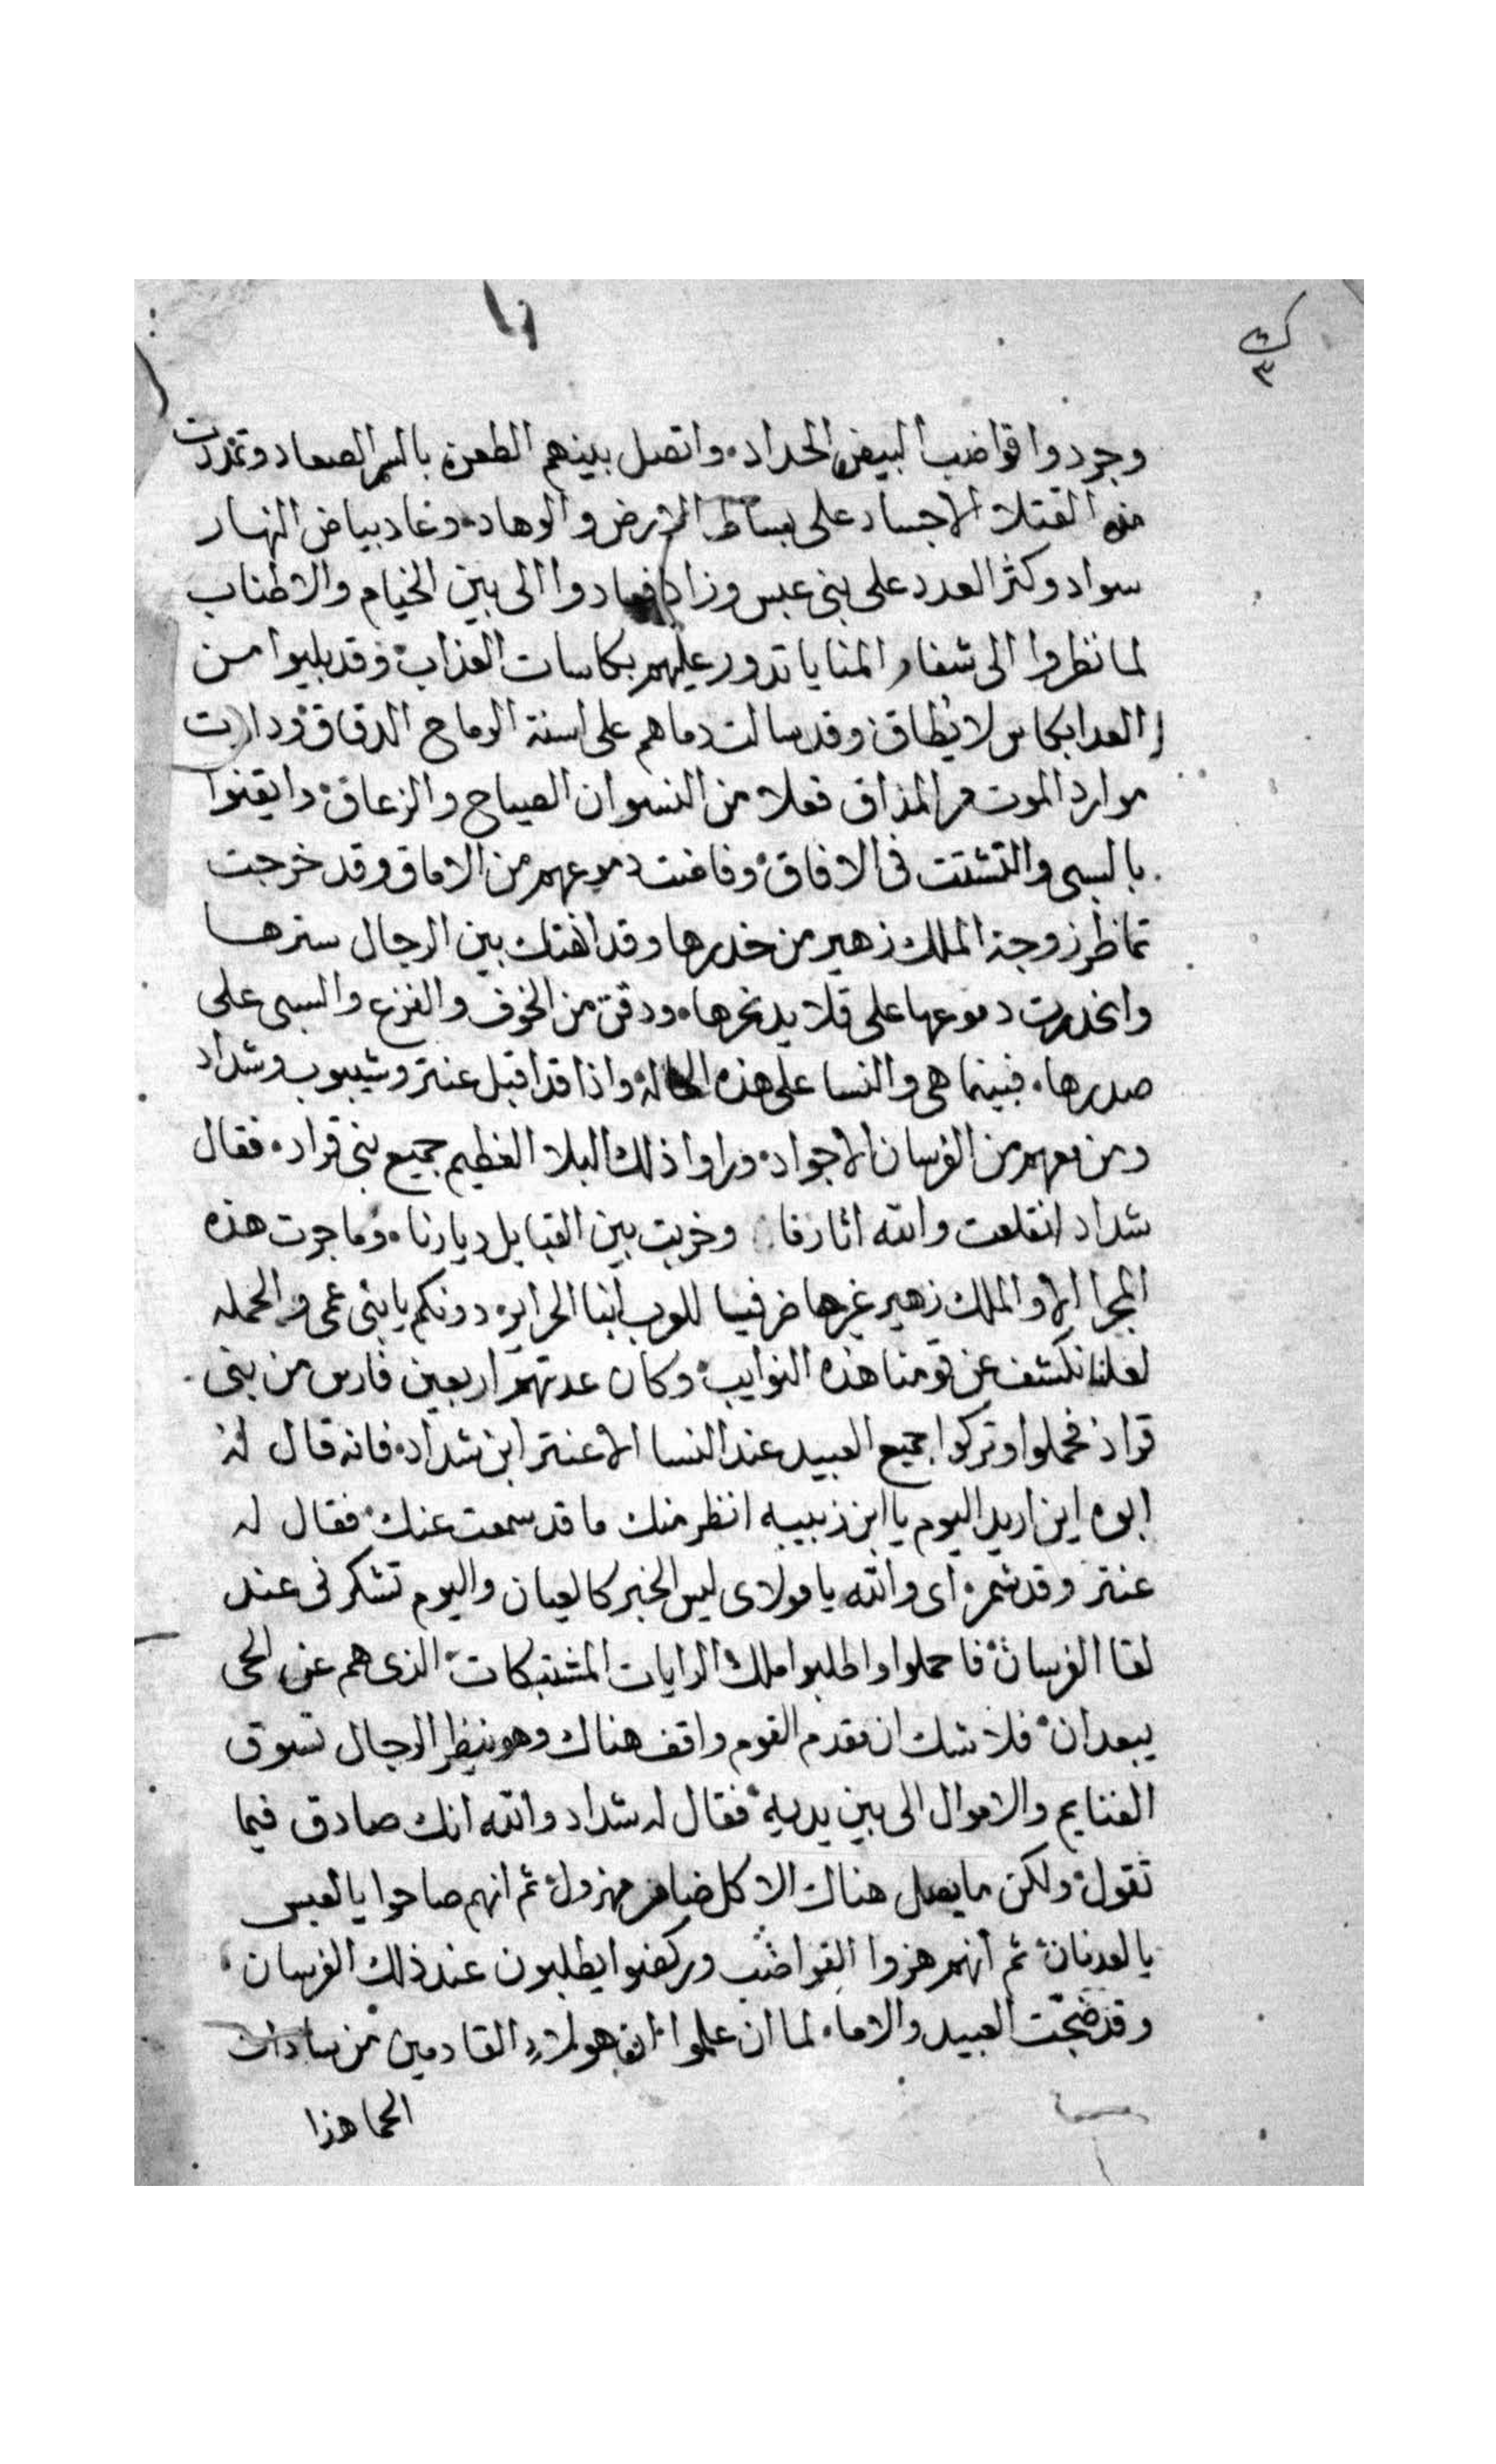 ك
٣
وجردوا قواضب البيض الحداد واتصل بينهم الطعن بالسمر الصعاد وتمددت
من القتلا الاجساد على بساط الارض والوهاد وعاد بياض النهار
سواد وكثر العدد على بنى عبس وزاد فعادوا الى بين الخيام والاطناب
لما نظروا الى شفار المنايا تدور عليهم بكاسات العذاب وقد بليوا من
العدا بكاس لا يطاق وقد سالت دماهم على اسنة الرماح الدقاق ودارت
موارد الموت مر المذاق فعلا من النسوان الصياح والزعاق وايقنوا
بالسبى والتشتت فى الافاق وفاضت دموعهم من الاماق وقد خرجت
تماظر زوجة الملك زهير من خدرها وقد انهتك بين الرجال سترها
وانحدرت دموعها على قلايد نحرها ودقت من الخوف والفزع والسبى على
صدرها فبينما هى والنسا على هذه الحالة واذا قد اقبل عنتر وشيبوب وشداد
ومن معهم من الفرسان الاجواد وراوا ذلك البلا العظيم جميع بنى قراد فقال
شداد انقلعت والله اثارنا وخربت بين القبايل ديارنا وما جرت هذه
المجرا الا والملك زهير غرها دونكم يا بنى عمى والحمله
لعلنا نكشف عن قومنا هذه النوايب وكان عدتهم اربعين فارس من بنى
قراد فحملوا وتركوا جميع العبيد عند النسا الا عنتر ابن شداد فانه قال له
ابوه اين اريد اليوم يا ابن زبيبه انظر منك ما قد سمعت عنك فقال له
عنتر وقد شمر اى والله يا مولاى ليس الخبر كالعيان واليوم تشكرنى عند
لقا الفرسان فاحملوا واطلبوا ملك الرايات المشتبكات الذى هم عن الحى
يبعدان فلا شك ان مقدم القوم واقف هناك وهو ينظر الرجال تسوق
الغنايم والاموال الى بين يديه فقال له شداد والله انك صادق فيما
تقول ولكن ما يصل هناك الا كل ضامر مهزول ثم انهم صاحوا يا لعبس
يا لعدنان ثم انهم هزوا القواضب وركضوا يطلبون عند ذلك الفرسان
وقد ضجت العبيد والاماء لما ان علموا ان هولاء القادمين من سادات
الحما هذا